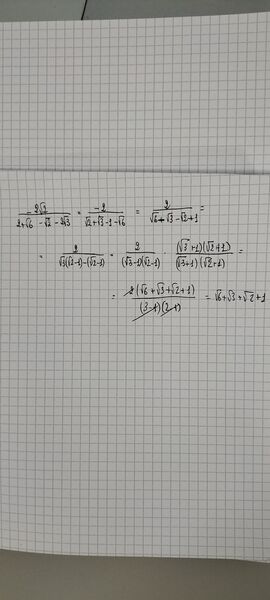 -2√2 / (2+√6 -√2 -2√3) = -2 / (√2+√3-1-√6) = 2 / (√6-√3-√2+1) =
= 2 / (√3(√2-1)-(√2-1)) = 2 / ((√3-1)(√2-1)) · (√3+1)(√2+1) / ((√3+1)(√2+1)) =
= 2(√6+√3+√2+1) / ((3-1)(2-1)) = √6+√3+√2+1